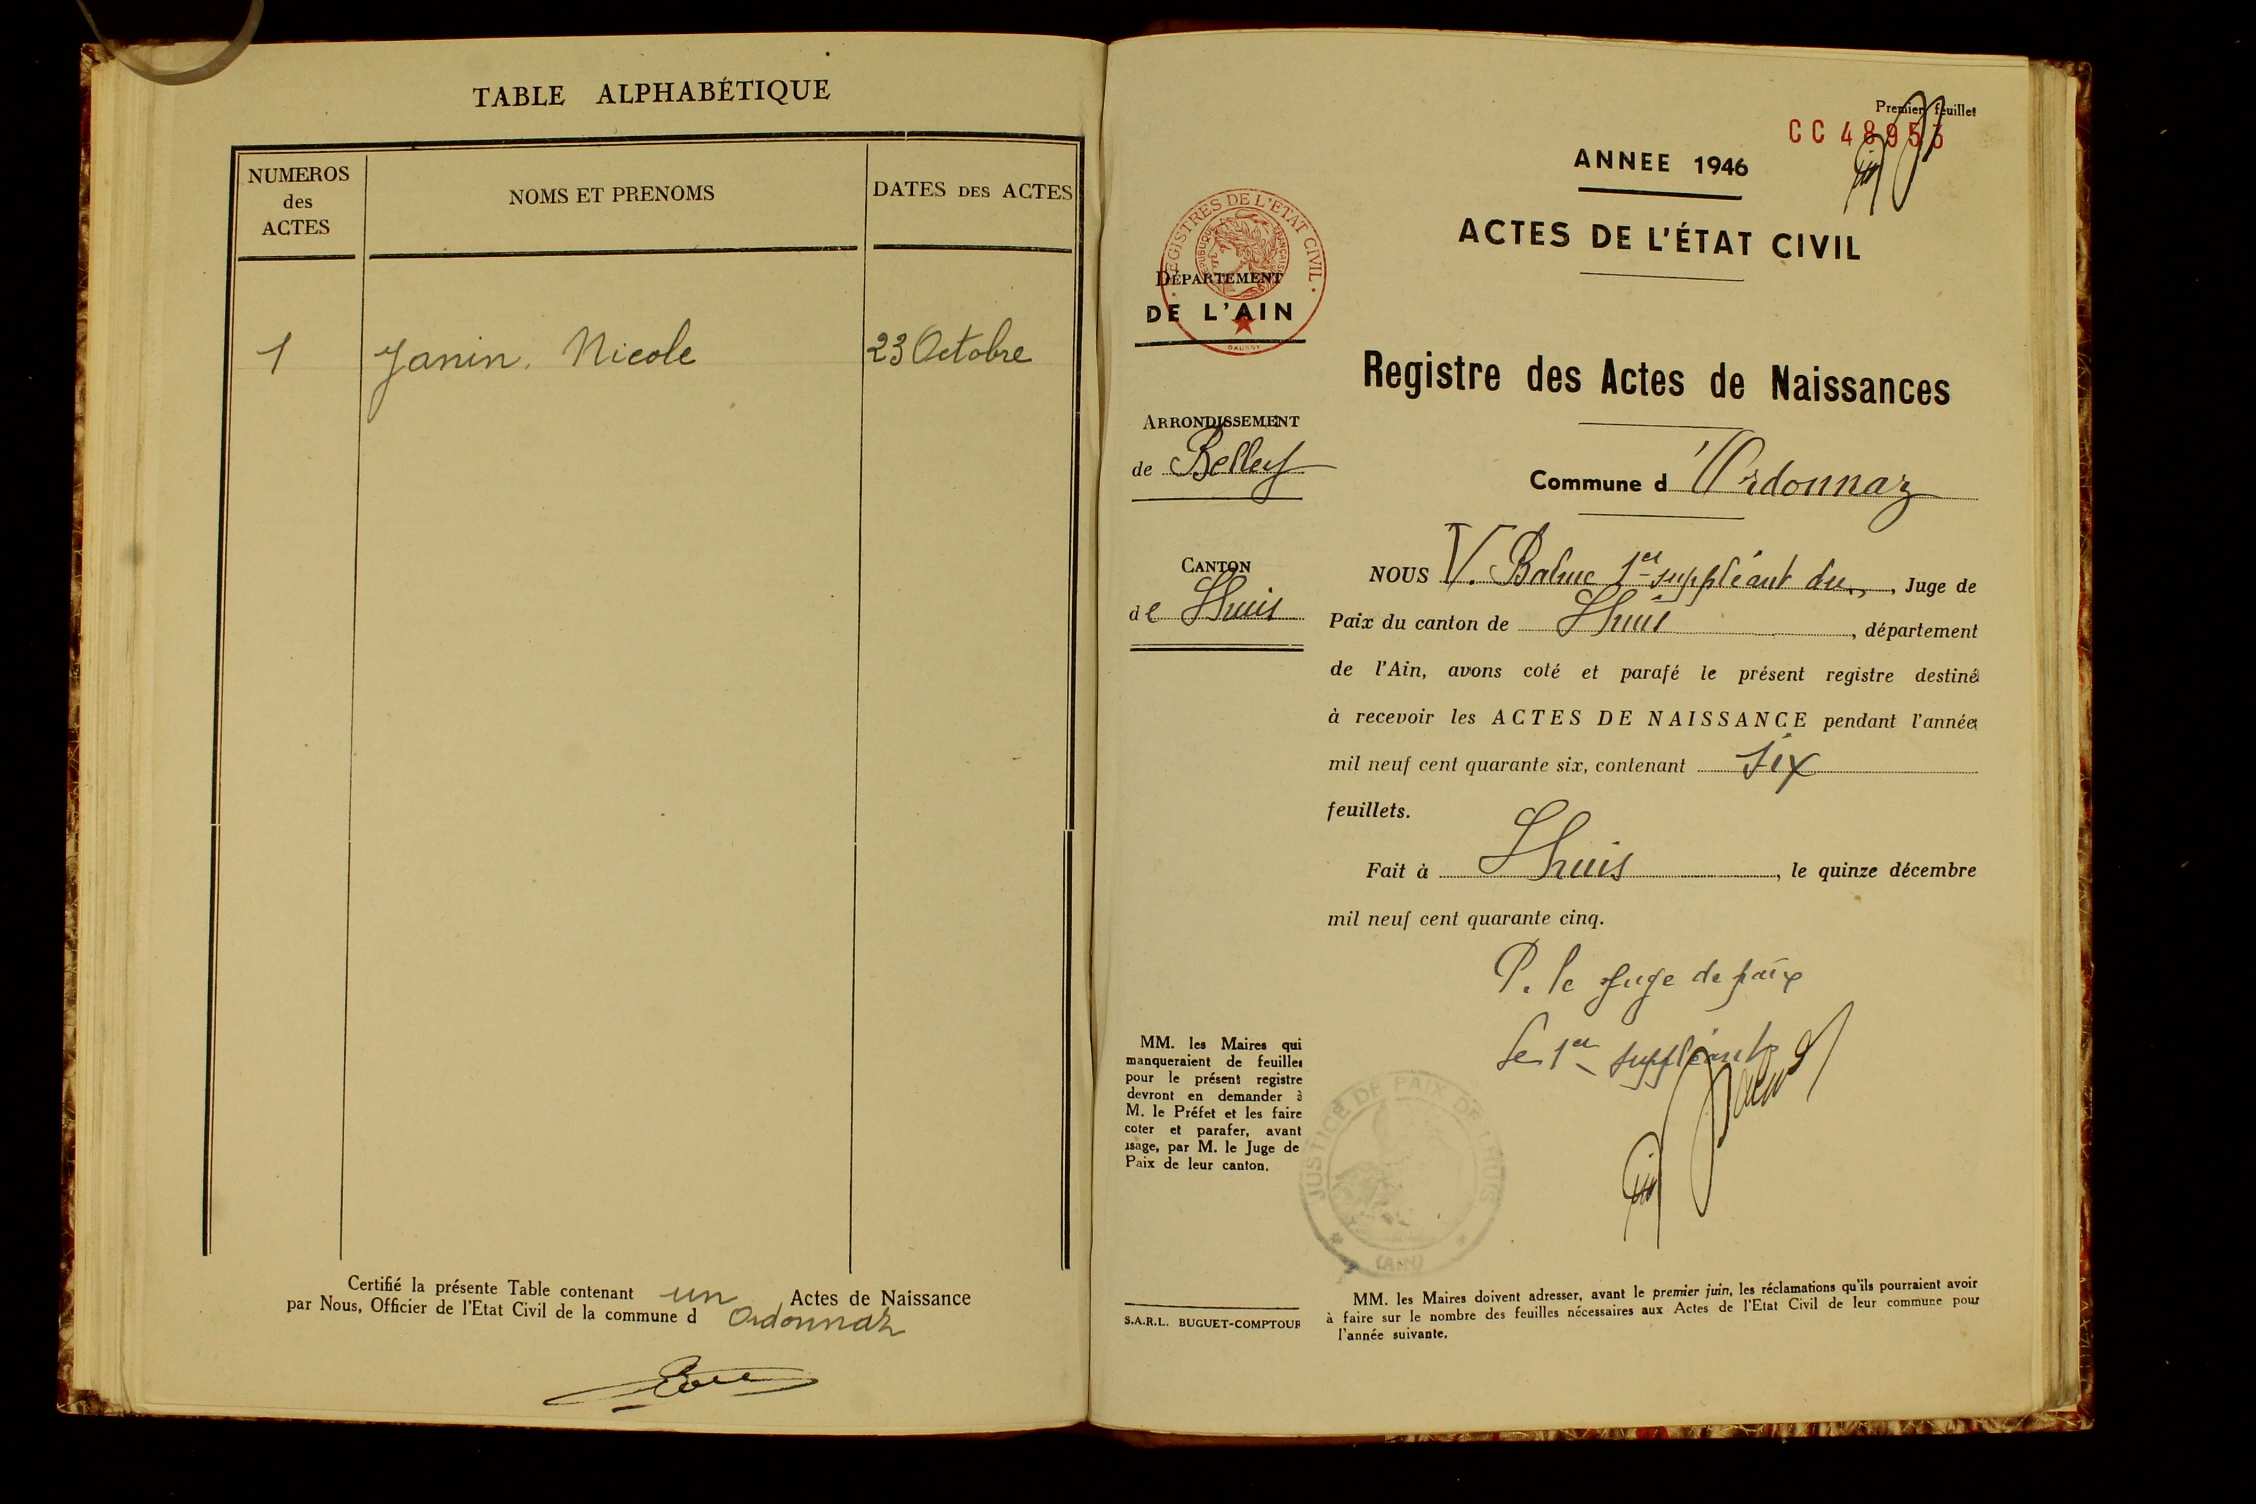 TABLE ALPHABÉTIQUE
NUMEROS
des
ACTES
NOMS ET PRENOMS
DATES DES ACTES
1 Janin. Nicole 23 Octobre
Certifié la présente Table contenant un Actes de Naissance
par Nous, Officier de l'Etat Civil de la commune d Ordonnaz
Premier feuillet
CC 48953
ANNEE 1946
ACTES DE L'ÉTAT CIVIL
REGISTRES DE L'ETAT CIVIL
REPUBLIQUE FRANÇAISE
DÉPARTEMENT
DE L'AIN
Registre des Actes de Naissances
ARRONDISSEMENT
de Belley
Commune d'Ordonnaz
CANTON
de Lhuis
NOUS V. 1er suppléant du, Juge de
Paix du canton de Lhuis, département
de l'Ain, avons coté et parafé le présent registre destiné
à recevoir les ACTES DE NAISSANCE pendant l'année
mil neuf cent quarante six, contenant six
feuillets.
Fait à Lhuis, le quinze décembre
mil neuf cent quarante cinq.
P. le Juge de paix
Le 1er suppléant
MM. les Maires qui
manqueraient de feuilles
pour le présent registre
devront en demander à
M. le Préfet et les faire
coter et parafer, avant
usage, par M. le Juge de
Paix de leur canton.
JUSTICE DE PAIX DE LHUIS
(AIN)
S.A.R.L. BUGUET-COMPTOUR
MM. les Maires doivent adresser, avant le premier juin, les réclamations qu'ils pourraient avoir
à faire sur le nombre des feuilles nécessaires aux Actes de l'Etat Civil de leur commune pour
l'année suivante.